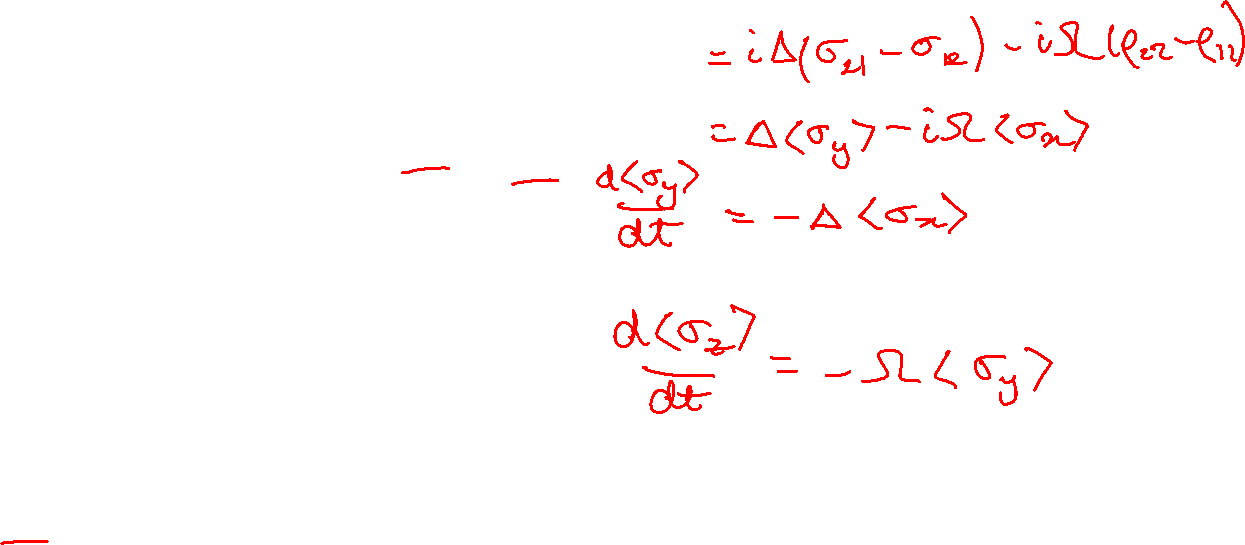 = iΔ(σ₂₁ − σ₁₂) − iΩ(ρ₂₂ − ρ₁₁)
= Δ⟨σ_y⟩ − iΩ⟨σ_x⟩
— — d⟨σ_y⟩/dt = −Δ⟨σ_x⟩
d⟨σ_z⟩/dt = −Ω⟨σ_y⟩
—